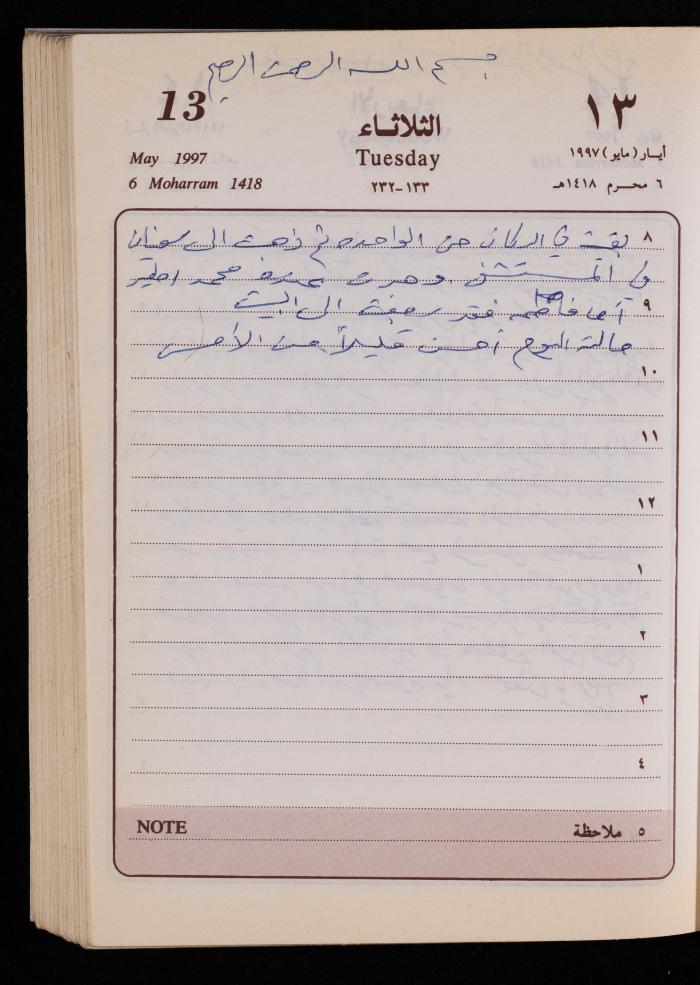 بسم الله الرحمن الرحيم
13
١٣
May 1997
الثلاثاء
أيـار (مايو) ١٩٩٧
6 Moharram 1418
Tuesday
٦ محرم ١٤١٨هـ
١٣٣-٢٣٢
٨ بقيت في الدكان حتى الواحده ثم ذهبت الى سفيان
في المستشفى محمد
٩ أما فاطمه فقد رجعت الى البيت
حالته اليوم أحسن قليلاً من الأمس
١٠
١١
١٢
١
٢
٣
٤
NOTE
٥ ملاحظة